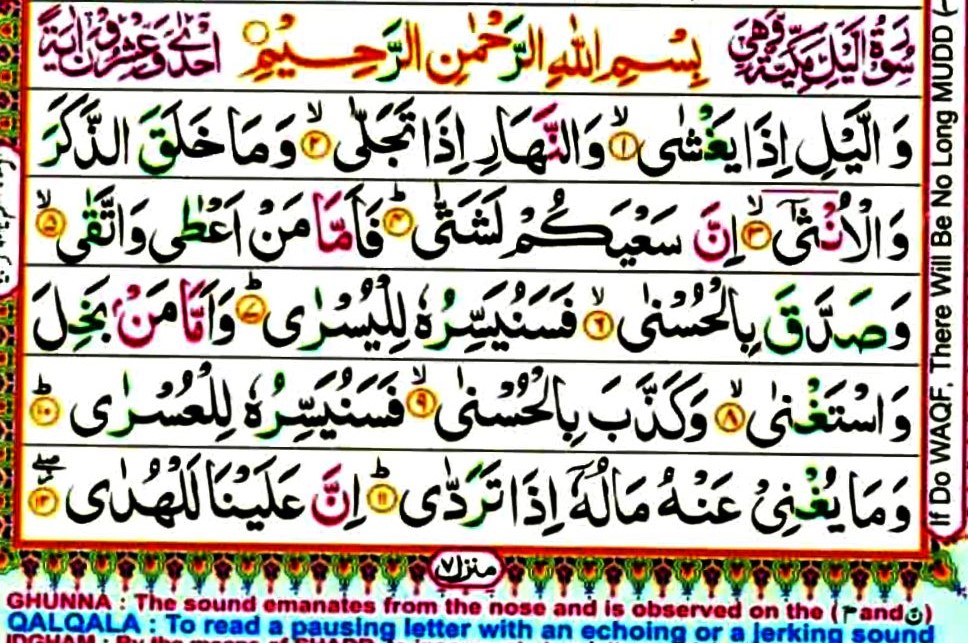 سُوْرَةُ الَّيْلِ مَكِّيَّةٌ وَّهِيَ بِسْمِ اللهِ الرَّحْمٰنِ الرَّحِيْمِ اِحْدٰى وَعِشْرُوْنَ اٰيَةً
وَ الَّيْلِ اِذَا يَغْشٰى ۙ﴿۱﴾ وَالنَّهَارِ اِذَا تَجَلّٰى ۙ﴿۲﴾ وَ مَا خَلَقَ الذَّكَرَ
وَ الْاُنْثٰۤى ۙ﴿۳﴾ اِنَّ سَعْيَكُمْ لَشَتّٰى ؕ﴿۴﴾ فَاَمَّا مَنْ اَعْطٰى وَاتَّقٰى ۙ﴿۵﴾
وَ صَدَّقَ بِالْحُسْنٰى ۙ﴿۶﴾ فَسَنُيَسِّرُهٗ لِلْيُسْرٰى ؕ﴿۷﴾ وَ اَمَّا مَنْۢ بَخِلَ
وَ اسْتَغْنٰى ۙ﴿۸﴾ وَ كَذَّبَ بِالْحُسْنٰى ۙ﴿۹﴾ فَسَنُيَسِّرُهٗ لِلْعُسْرٰى ؕ﴿۱۰﴾
وَ مَا يُغْنِيْ عَنْهُ مَالُهٗۤ اِذَا تَرَدّٰى ؕ﴿۱۱﴾ اِنَّ عَلَيْنَا لَلْهُدٰى ۖ﴿۱۲﴾
منزل ۷
If Do WAQF, There Will Be No Long MUDD (
GHUNNA : The sound emanates from the nose and is observed on the (م and ن)
QALQALA : To read a pausing letter with an echoing or a jerking sound
IDGHAM : By the means of SHADD